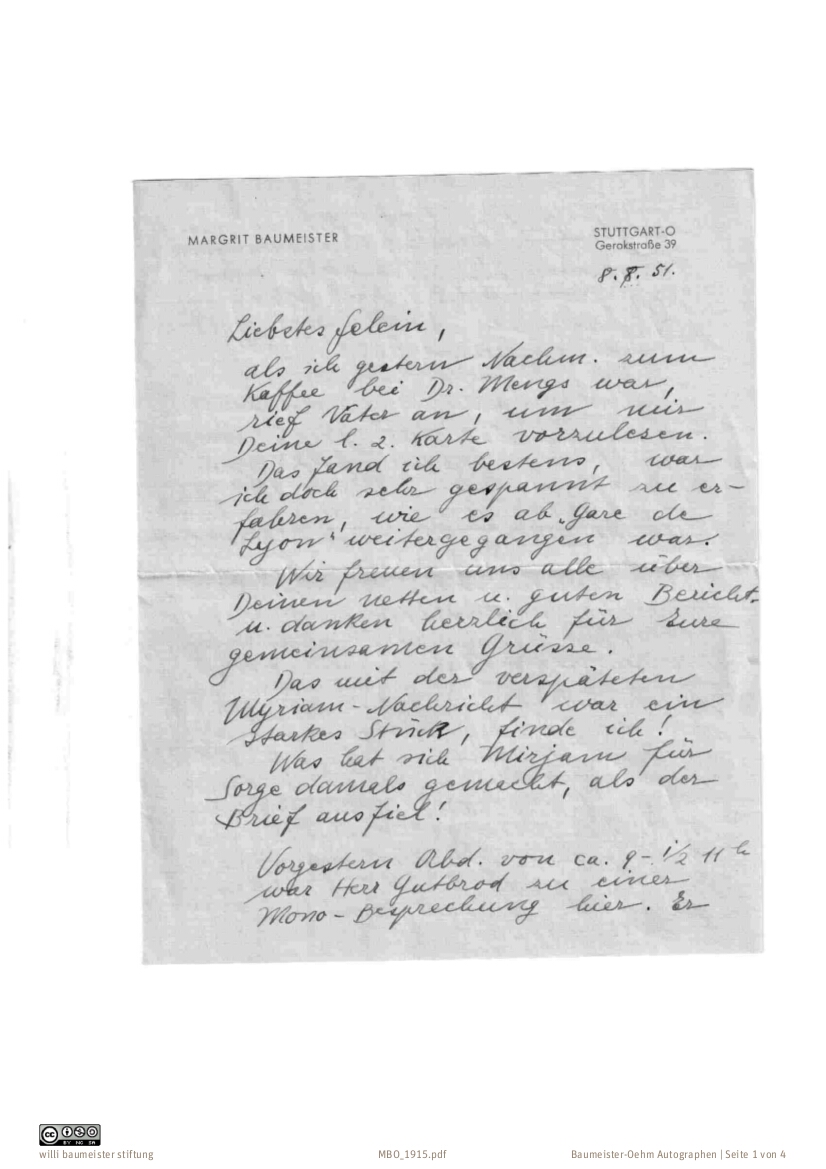 MARGRIT BAUMEISTER
STUTTGART-O
Gerokstraße 39
8. 8. 51.
Liebstes Felein,
als ich gestern Nachm. zum
Kaffee bei Dr. Mengs war,
rief Vater an, um mir
Deine l. 2. Karte vorzulesen.
Das fand ich bestens, war
ich doch sehr gespannt zu er-
fahren, wie es ab „Gare de
Lyon" weitergegangen war.
Wir freuen uns alle über
Deinen netten u. guten Bericht
u. danken herzlich für Eure
gemeinsamen Grüsse.
Das mit der verspäteten
Myriam-Nachricht war ein
starkes Stück, finde ich!
Was hat sich Mirjam für
Sorge damals gemacht, als der
Brief ausfiel!
Vorgestern Abd. von ca. 9-1/2 11 h
war Herr Gutbrod zu einer
Mono-Besprechung hier. Er
willi baumeister stiftung
MBO_1915.pdf
Baumeister-Oehm Autographen | Seite 1 von 4
CC BY NC SA